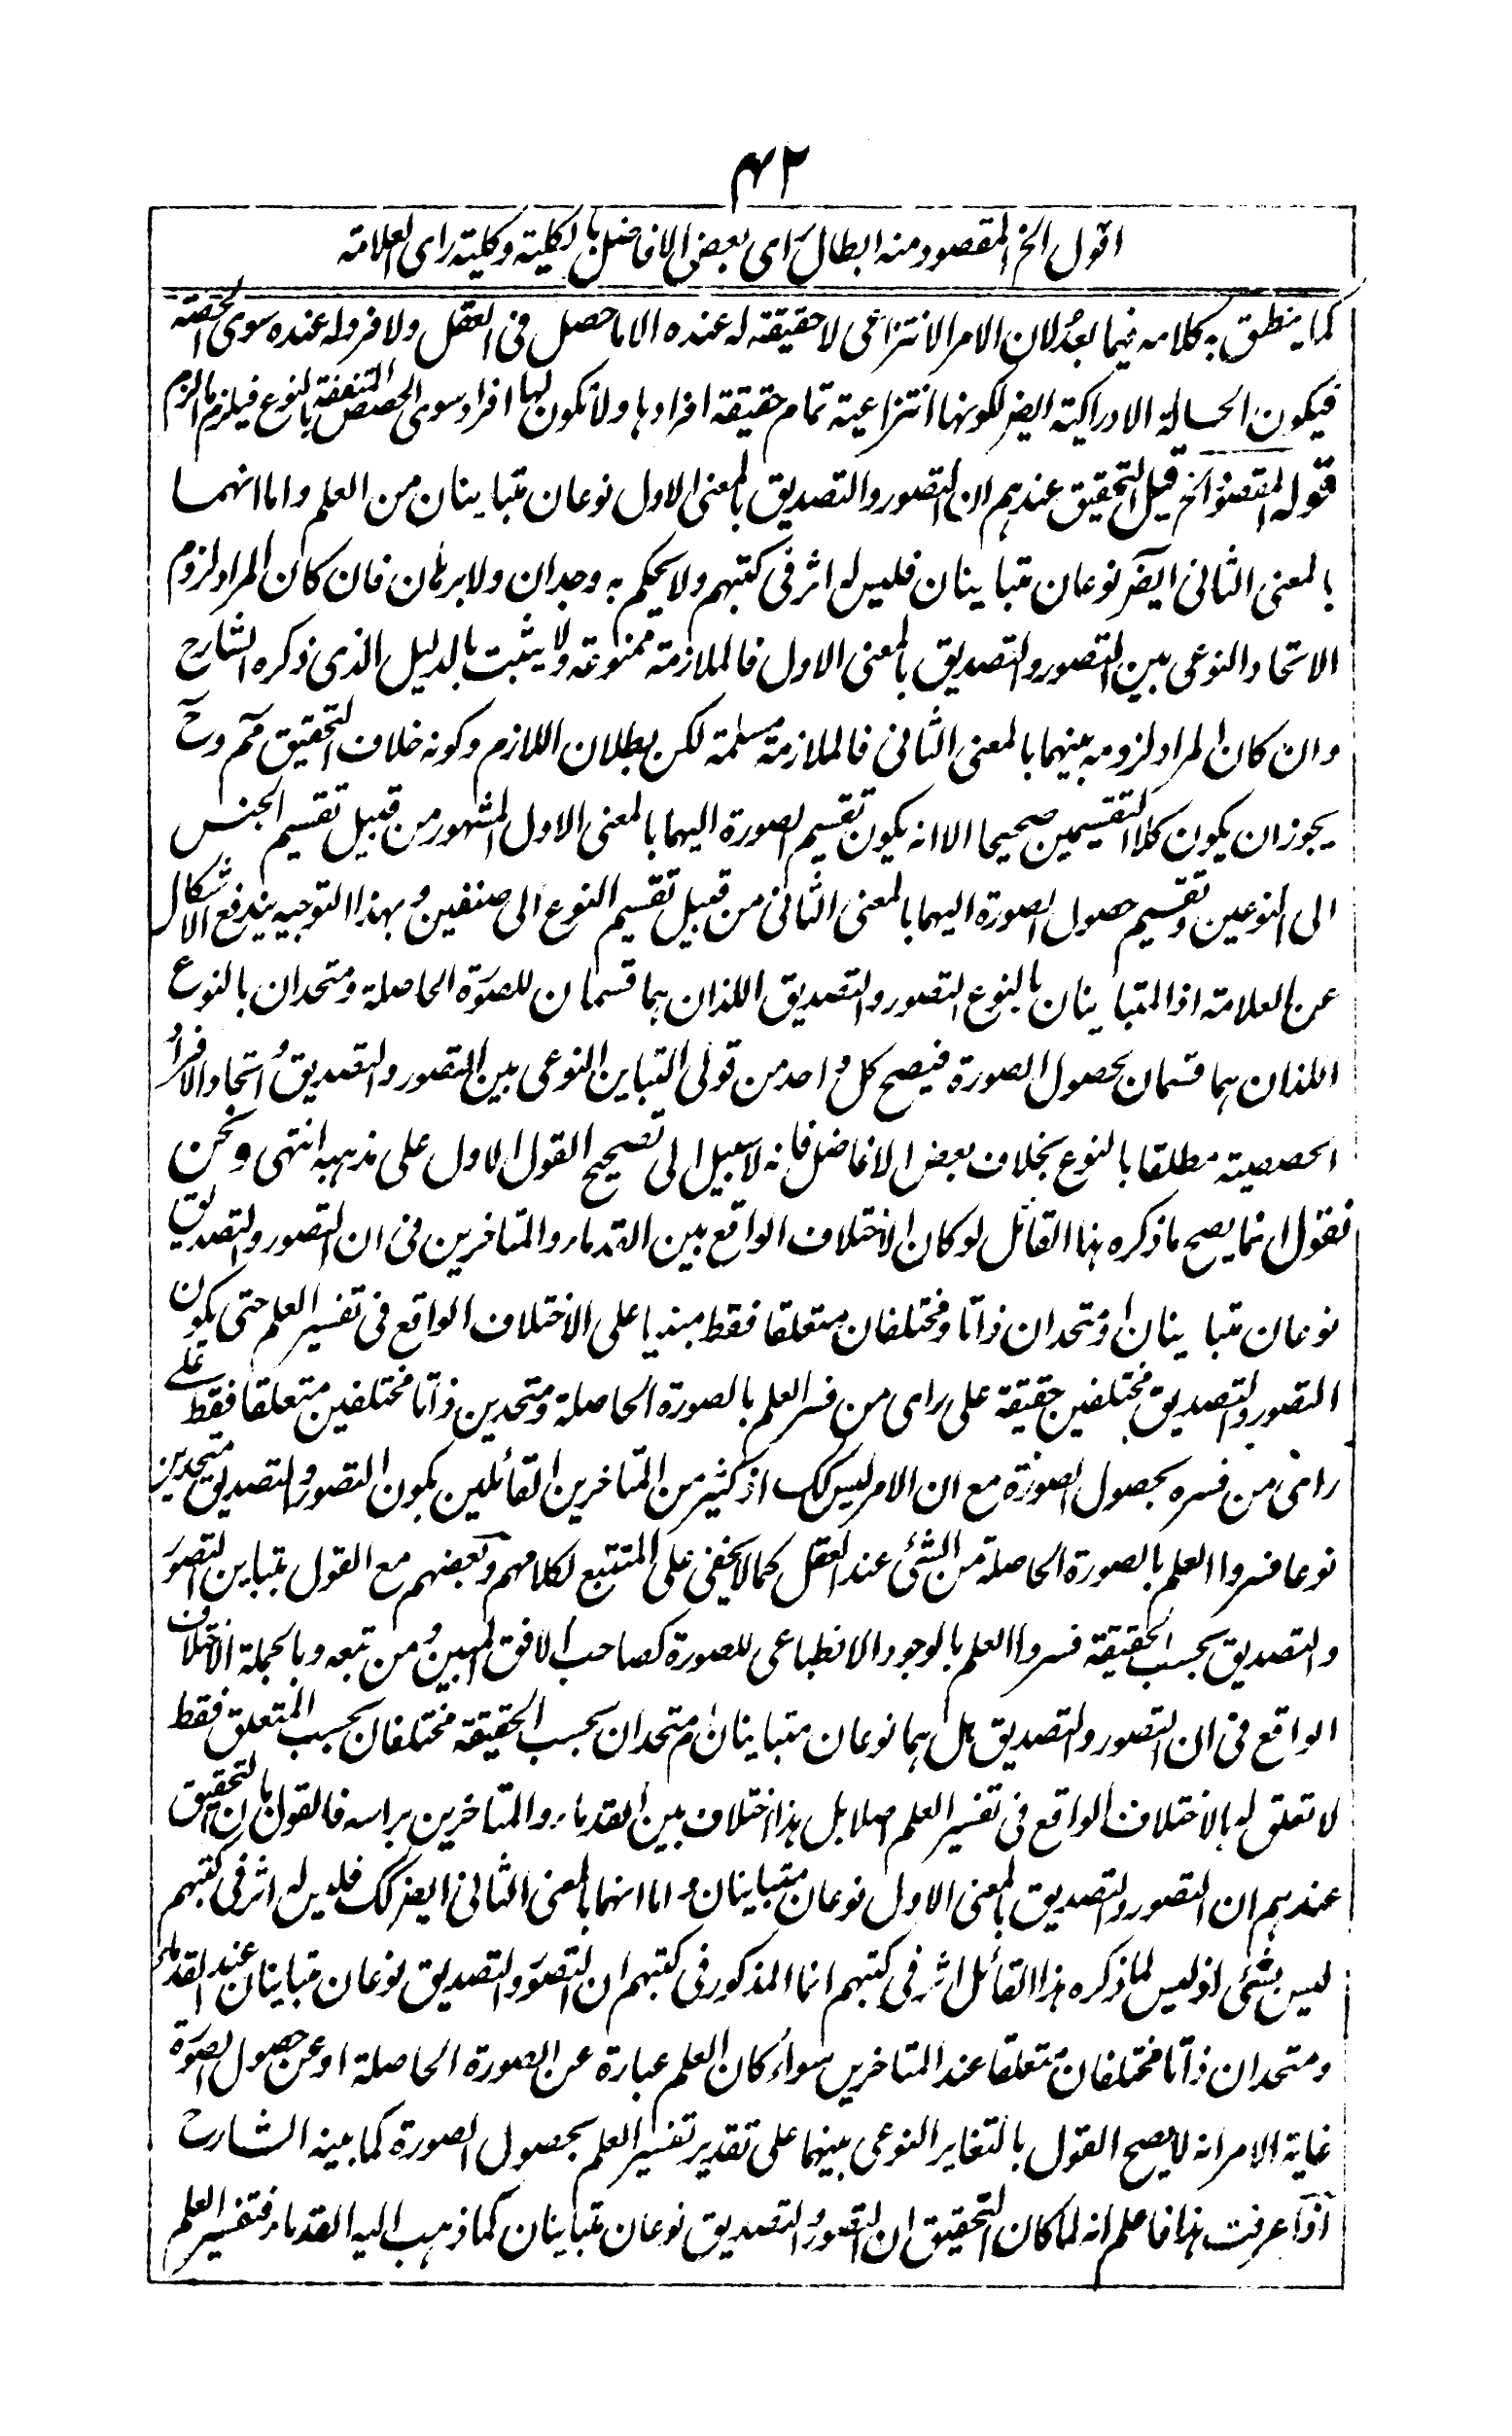 ۴۲
اقول الخ المقصود منه ابطال رای بعض الافاضل بالکلیة وکلیة رای العلامة
کما ینطق به کلامه فیما بعد ولان الامر الانتزاعی لا حقیقة له عنده الا ما حصل فی العقل ولا فرد له عنده سوی الحصة
فیکون الحالة الادراکیة ایضا لکونها انتزاعیة تمام حقیقة افرادها ولا تکون لها افراد سوی الحصص المتفقة بالنوع فیلزم ما لزم
قوله المقصود الخ قیل التحقیق عندهم ان التصور والتصدیق بالمعنی الاول نوعان متباینان من العلم واما انهما
بالمعنی الثانی ایضا نوعان متباینان فلیس له اثر فی کتبهم ولا یحکم به وجدان ولا برهان فان کان المراد لزوم
الاتحاد النوعی بین التصور والتصدیق بالمعنی الاول فالملازمة ممنوعة ولا یثبت بالدلیل الذی ذکره الشارح
وان کان المراد لزومه بینهما بالمعنی الثانی فالملازمة مسلمة لکن بطلان اللازم وکونه خلاف التحقیق مم وح
یجوز ان یکون کلا التقسیمین صحیحا الا انه یکون تقسیم الصورة الیهما بالمعنی الاول المشهور من قبیل تقسیم الجنس
الی النوعین وتقسیم حصول الصورة الیهما بالمعنی الثانی من قبیل تقسیم النوع الی صنفین وبهذا التوجیه یندفع الاشکال
عن العلامة اذ المتباینان بالنوع التصور والتصدیق اللذان هما قسمان للصورة الحاصلة ومتحدان بالنوع
اللذان هما قسمان لحصول الصورة فیصح کل واحد من قولی التباین النوعی بین التصور والتصدیق واتحاد الافراد
الحصصیة مطلقا بالنوع بخلاف بعض الافاضل فانه لا سبیل الی تصحیح القول الاول علی مذهبه انتهی ونحن
نقول انما یصح ما ذکره هذا القائل لو کان الاختلاف الواقع بین القدماء والمتاخرین فی ان التصور والتصدیق
نوعان متباینان او متحدان ذاتا ومختلفان متعلقا فقط مبنیا علی الاختلاف الواقع فی تفسیر العلم حتی یکون
التصور والتصدیق مختلفین حقیقة علی رای من فسر العلم بالصورة الحاصلة ومتحدین ذاتا مختلفین متعلقا فقط علی
رای من فسره بحصول الصورة مع ان الامر لیس کک اذ کثیر من المتاخرین القائلین بکون التصور والتصدیق متحدین
نوعا فسروا العلم بالصورة الحاصلة من الشئ عند العقل کما لا یخفی علی المتتبع لکلامهم وبعضهم مع القول بتباین التصور
والتصدیق بحسب الحقیقة فسروا العلم بالوجود الانطباعی للصورة کصاحب الافق المبین ومن تبعه وبالجملة الاختلاف
الواقع فی ان التصور والتصدیق هل هما نوعان متباینان ام متحدان بحسب الحقیقة مختلفان بحسب المتعلق فقط
لا تعلق له بالاختلاف الواقع فی تفسیر العلم اصلا بل هذا اختلاف بین القدماء والمتاخرین براسه فالقول بان التحقیق
عندهم ان التصور والتصدیق بالمعنی الاول نوعان متباینان واما انهما بالمعنی الثانی ایضا کک فلیس له اثر فی کتبهم
لیس بشئ اذ لیس لما ذکره هذا القائل اثر فی کتبهم انما المذکور فی کتبهم ان التصور والتصدیق نوعان متباینان عند القدماء
ومتحدان ذاتا مختلفان متعلقا عند المتاخرین سواء کان العلم عبارة عن الصورة الحاصلة او عن حصول الصورة
غایة الامر انه لا یصح القول بالتغایر النوعی بینهما علی تقدیر تفسیر العلم بحصول الصورة کما بینه الشارح
اذا عرفت هذا فاعلم انه لما کان التحقیق ان التصور والتصدیق نوعان متباینان کما ذهب الیه القدماء فتفسیر العلم